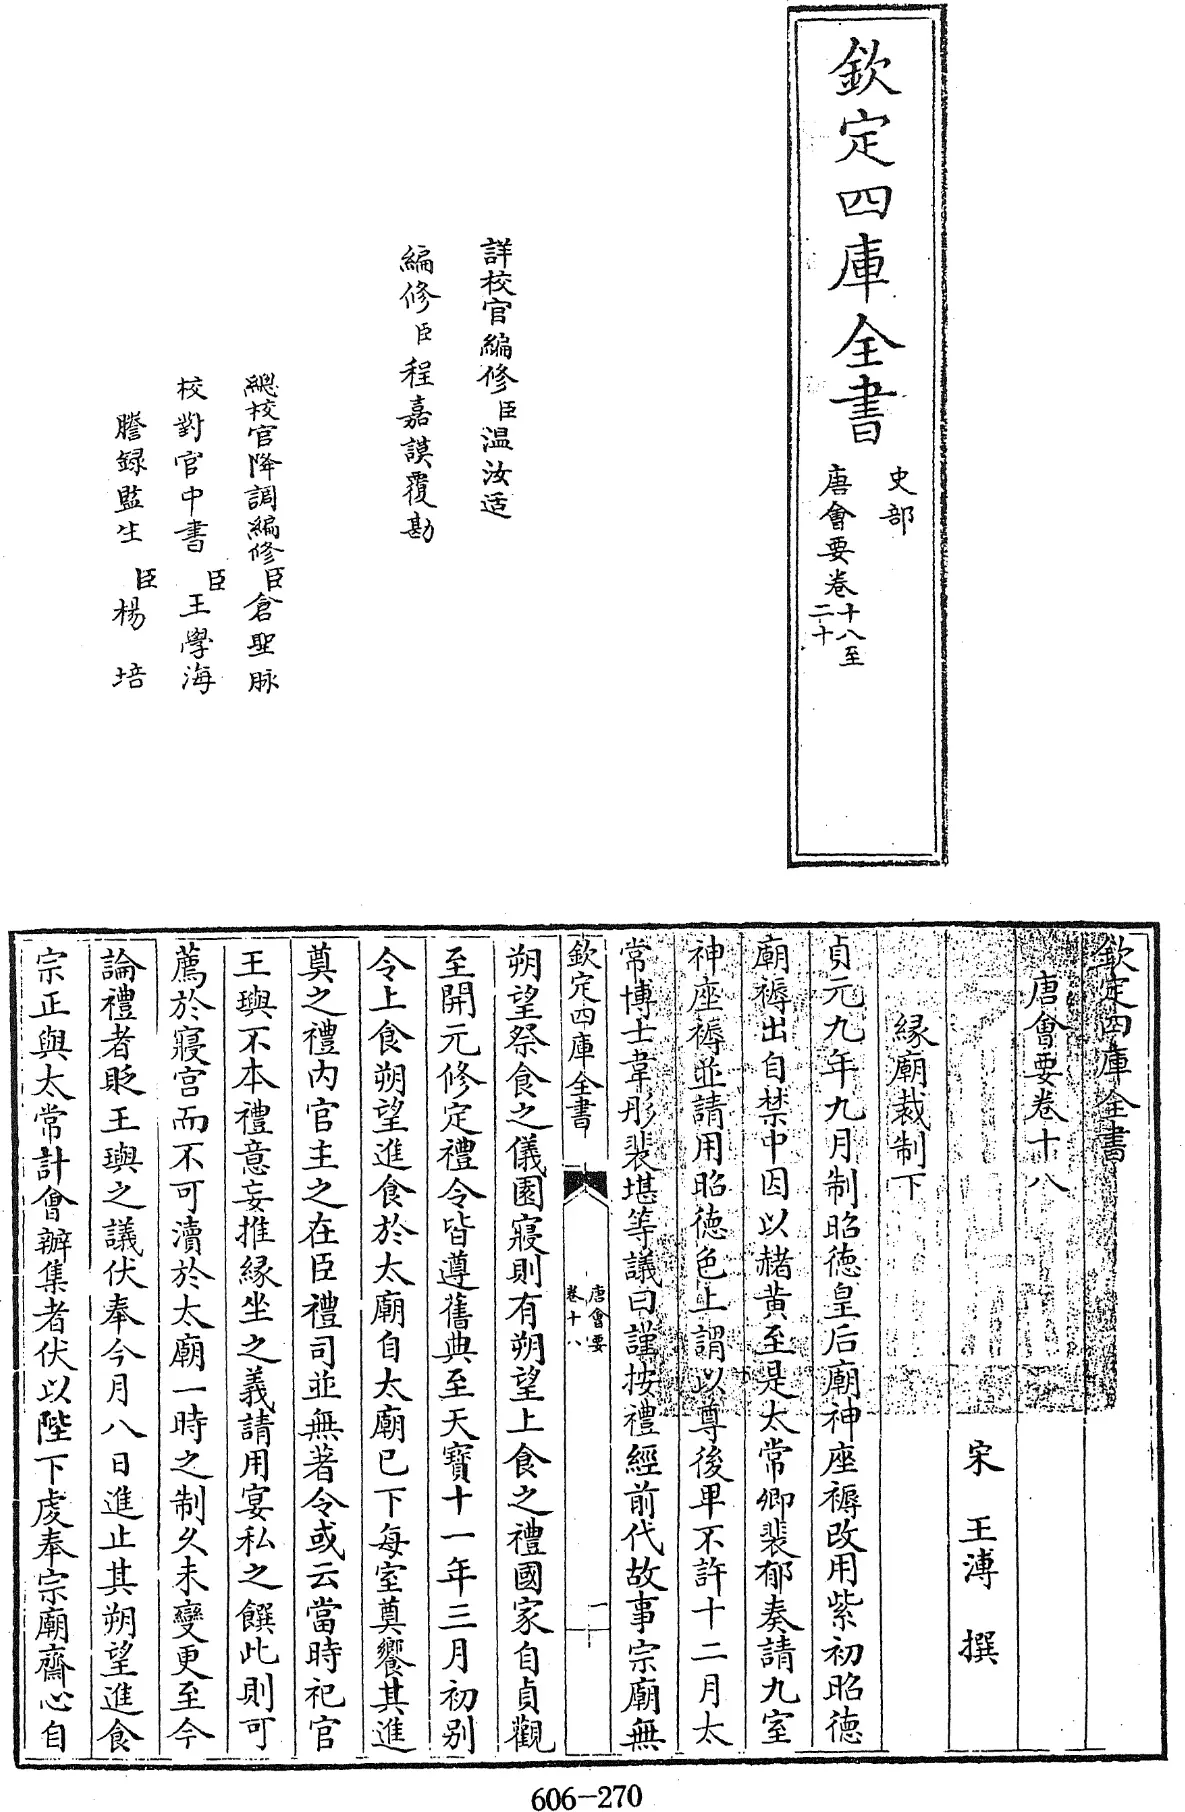 欽定四庫全書
史部
唐會要卷十八至二十
詳校官編修臣温汝适
編修臣程嘉謨覆勘
總校官降調編修臣倉聖脉
校對官中書臣王學海
謄録監生臣楊培
欽定四庫全書
唐會要卷十八
宋 王溥 撰
縁廟裁制下
貞元九年九月制昭徳皇后廟神座褥改用紫初昭徳
廟褥出自禁中因以赭黄至是太常卿裴郁奏請九室
神座褥並請用昭徳色上謂以尊後卑不許十二月太
常博士韋彤裴堪等議曰謹按禮經前代故事宗廟無
欽定四庫全書
唐會要
卷十八
一
朔望祭食之儀園寢則有朔望上食之禮國家自貞觀
至開元修定禮令皆遵舊典至天寶十一年三月初别
令上食朔望進食於太廟自太廟已下每室奠饗其進
奠之禮内官主之在臣禮司並無著令或云當時祀官
王璵不本禮意妄推縁坐之義請用宴私之饌此則可
薦於寢宫而不可瀆於太廟一時之制久未變更至今
論禮者貶王璵之議伏奉今月八日進止其朔望進食
宗正與太常計會辦集者伏以陛下虔奉宗廟齋心自
606-270